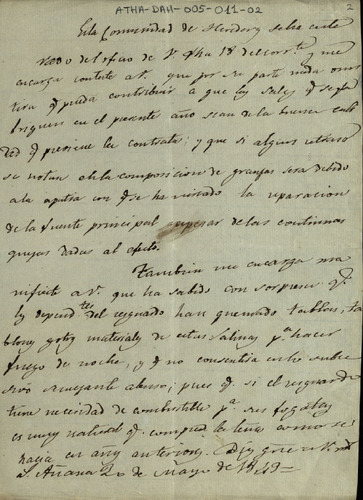 ATHA-DAH-005-011-02
2
Esta Comunidad de Herederos se ha ente
rado del oficio de V. fha 18 del corrte y me
encarga conteste a V. que por su parte nada omi
tira qe pueda contribuir a que las sales qe se fa
briquen en el presente año sean de la buena cali
dad qe previene la contrata; y que si algun retraso
se notan en la composicion de granjas sera debido
a la apatia con qe se ha mirado la reparacion
de la fuente principal apesar de las continuas
quejas dadas al efecto.
Tambien me encarga ma
nifieste a V. que ha sabido con sorpresa qe
los dependtes del resguardo han quemado tablas, ta
blones y otros materiales de estas Salinas pa hacer
fuego de noche, y qe no consentira en lo subce
sivo semejante abuso; pues qe si el resguardo
tiene necesidad de combustible pa sus fogatas
es muy natural qe compre la leña como se
hacia en años anteriores. Dios gue a V. ms as
Añana 20 de Mayo de 1849=